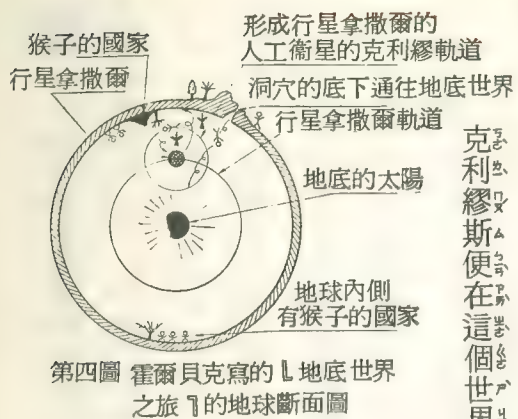 形成行星拿撒爾的
人工衞星的克利繆軌道
猴子的國家
行星拿撒爾
洞穴的底下通往地底世界
行星拿撒爾軌道
地底的太陽
地球內側
有猴子的國家
第四圖 霍爾貝克寫的﹂地底世界
之旅﹁的地球斷面圖
克利繆斯便在這個世界